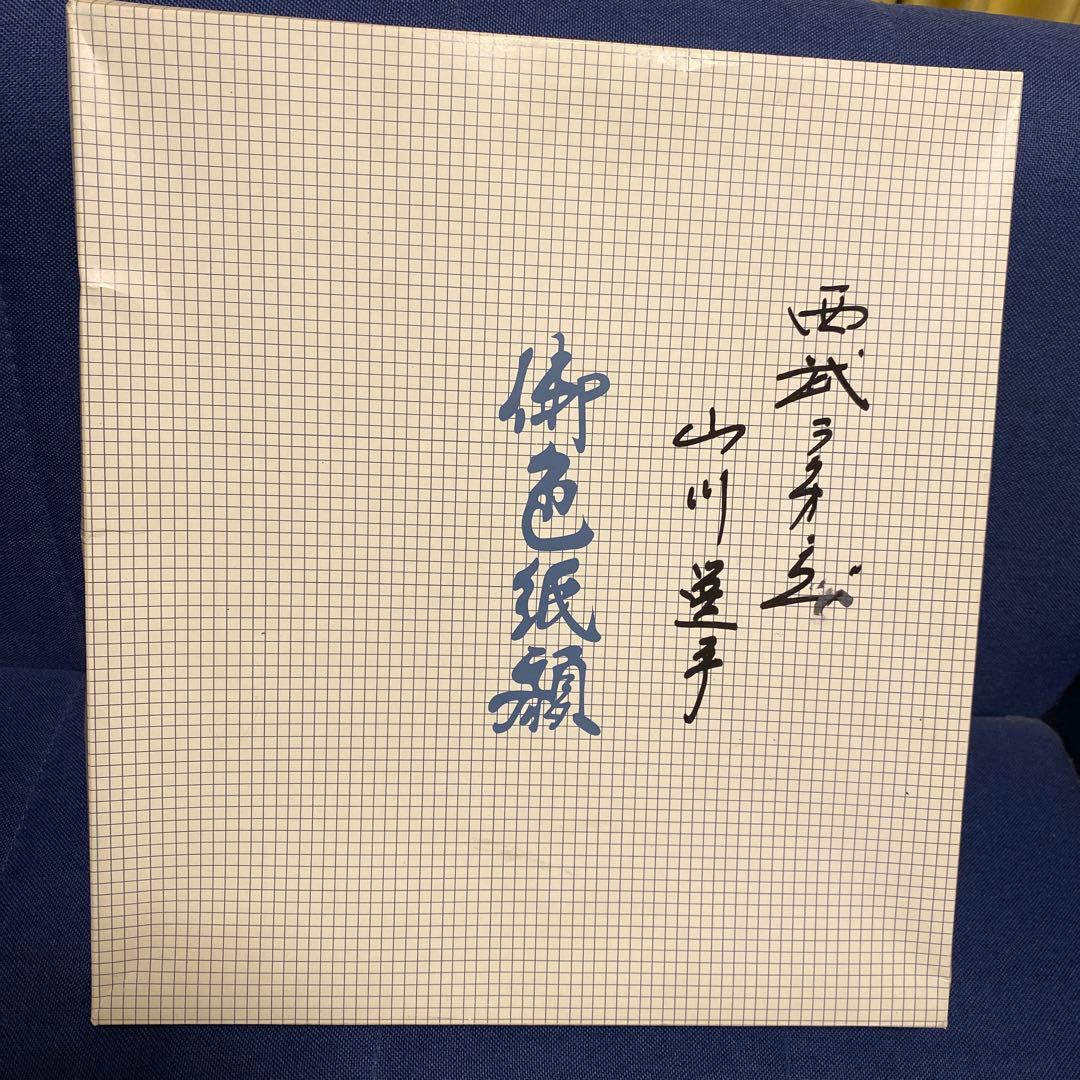 西武ライオンズ
山川選手
御色紙額